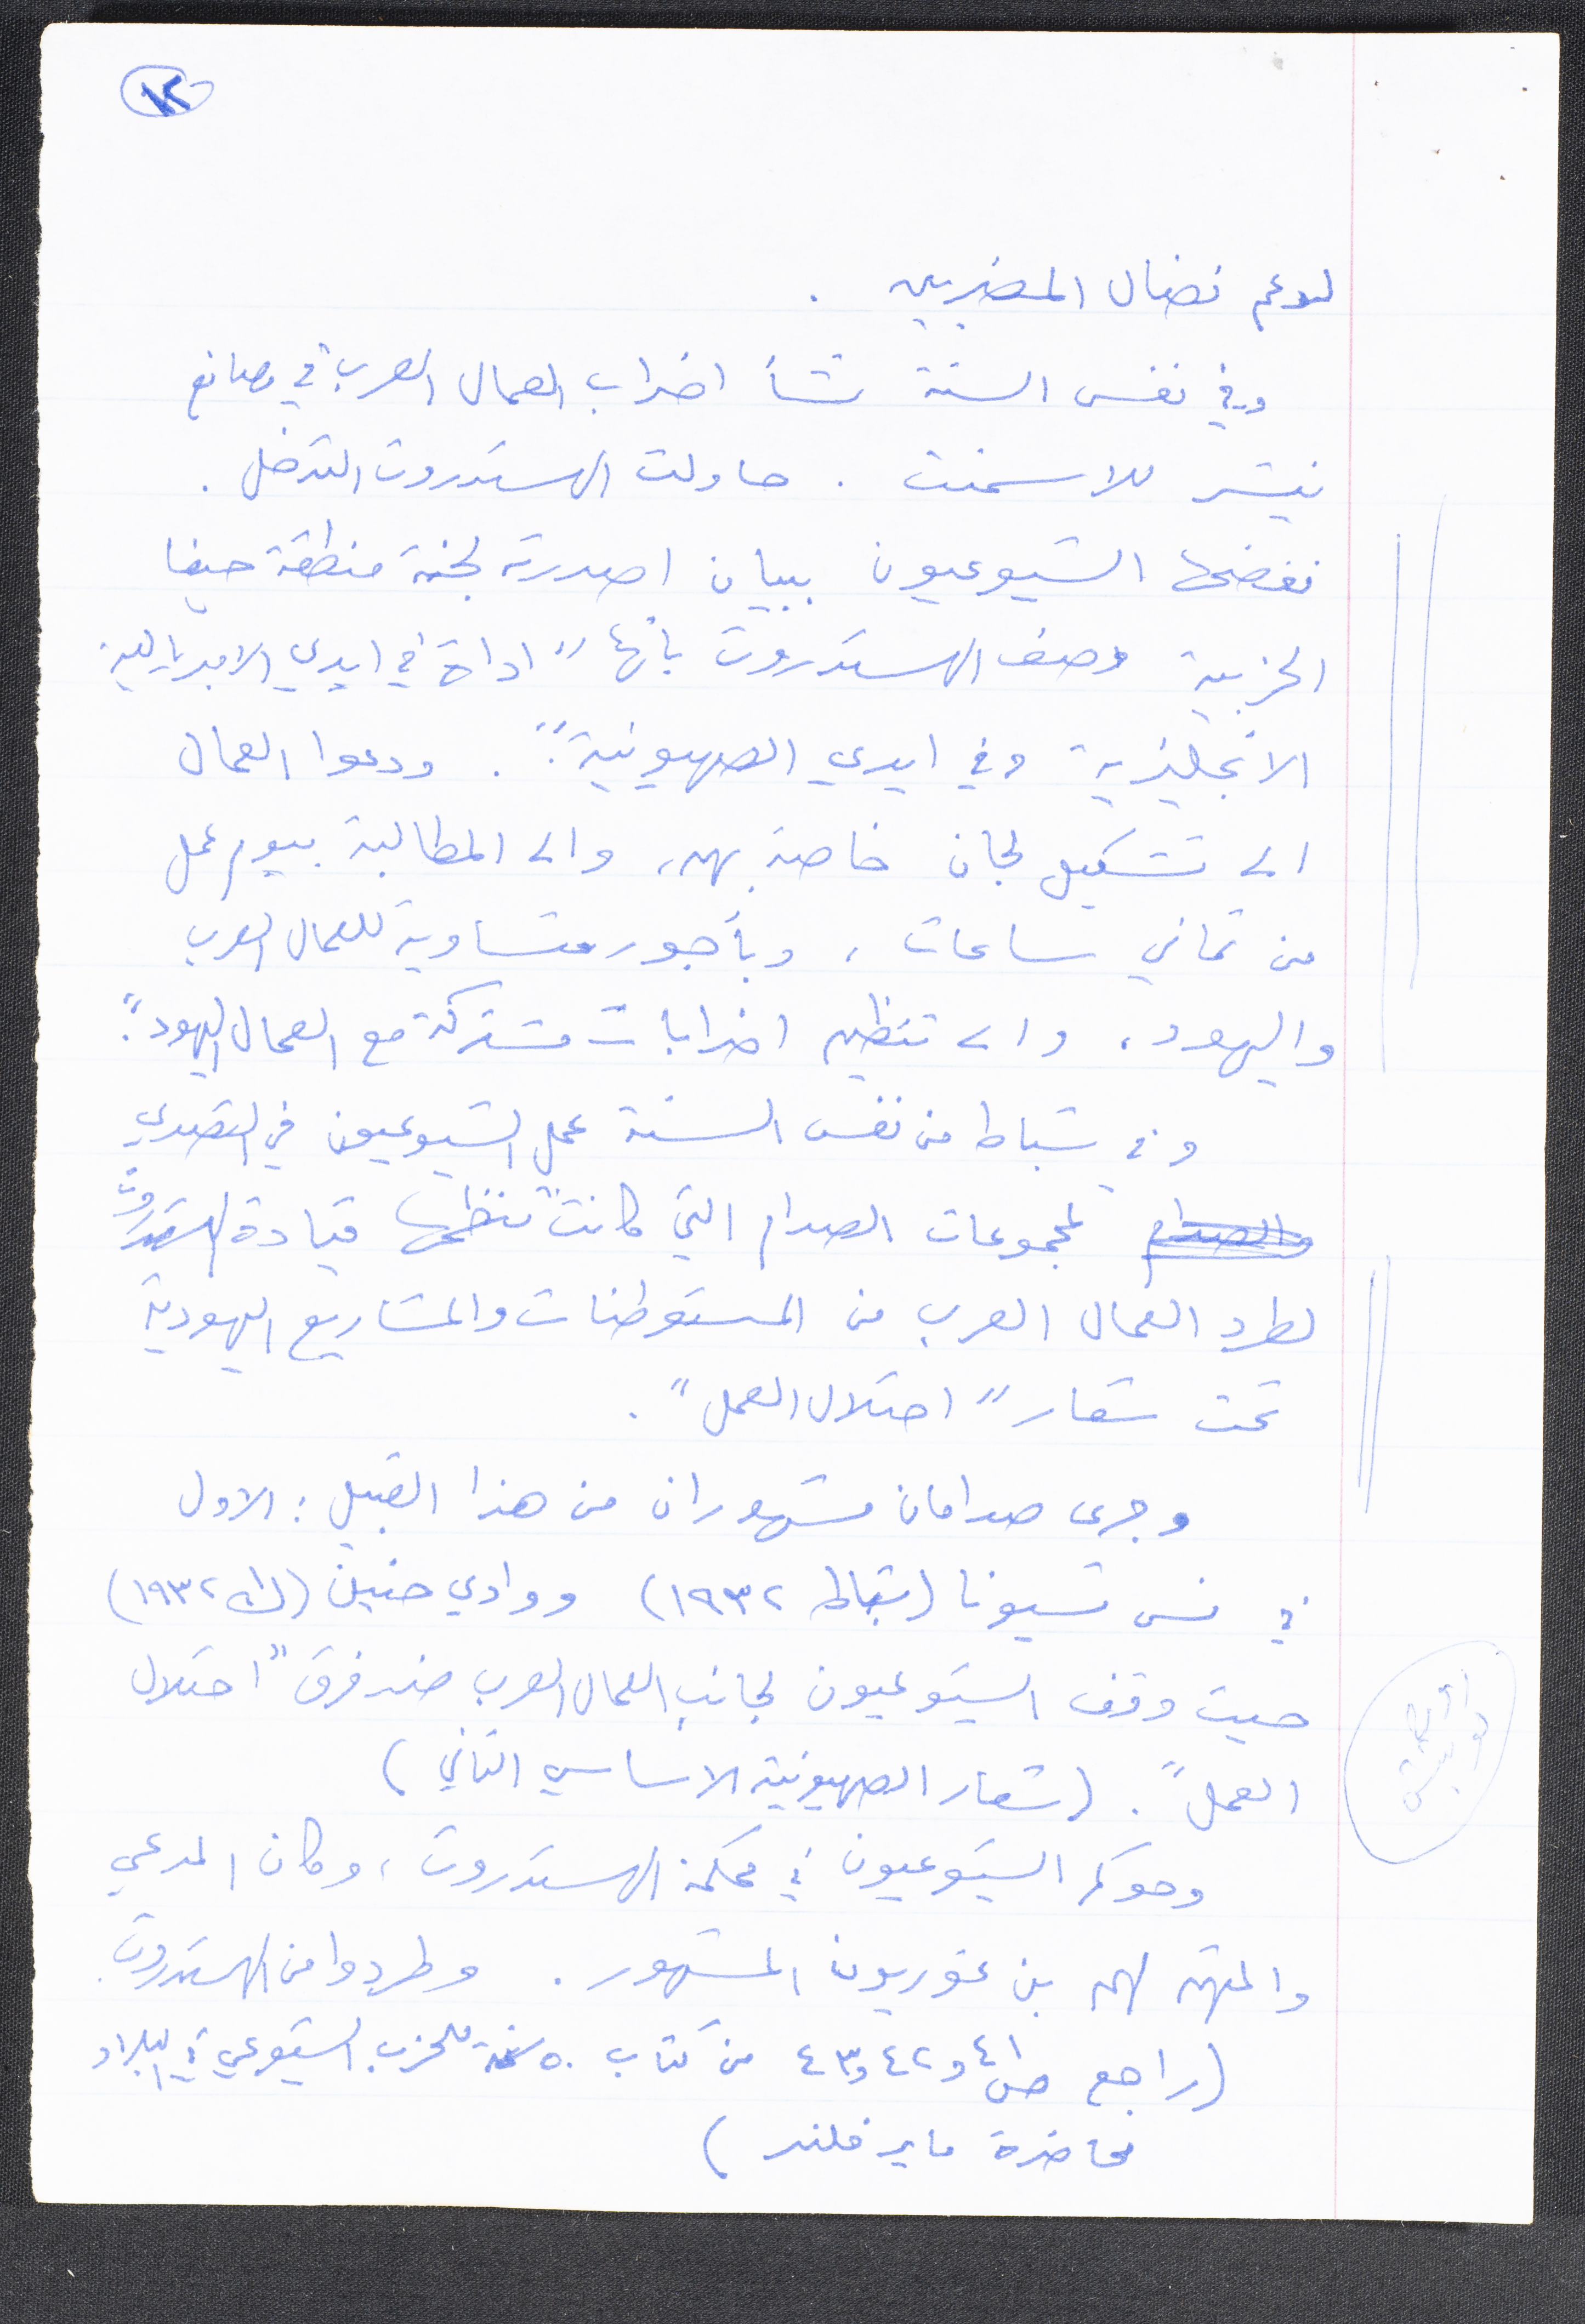 ١٢
لدعم نضال المضربين .
وفي نفس السنة نشأ اضراب العمال العرب في مصانع
نيشر للاسمنت . حاولت الهستدروت التدخل .
ففضحها الشيوعيون ببيان اصدرته لجنة منطقة حيفا
الحزبية وصف الهستدروت بأنها "اداة في ايدي الامبريالية
الانجليزية وفي ايدي الصهيونية" . ودعوا العمال
الى تشكيل لجان خاصة بهم، والى المطالبة بيوم عمل
من ثماني ساعات ، وبأجور متساوية للعمال العرب
واليهود ، والى تنظيم اضرابات مشتركة مع العمال اليهود".
وفي شباط من نفس السنة عمل الشيوعيون في التصدي
والصدام لمجموعات الصدام التي كانت تنظمها قيادة الهستدروت
لطرد العمال العرب من المستوطنات والمشاريع اليهودية
تحت شعار "احتلال العمل" .
وجرى صدامان مشهوران من هذا القبيل : الاول
في نس تسيونا (شباط ١٩٣٢) ووادي حنين (ك١ ١٩٣٢)
حيث وقف الشيوعيون لجانب العمال العرب ضد فرق "احتلال
العمل" . (شعار الصهيونية الاساسي الثاني)
وحوكم الشيوعيون في محكمة الهستدروت ، وكان المدعي
والمتهم لهم بن غوريون المشهور . وطردوا من الهستدروت .
(راجع ص ٤١ و٤٢ و٤٣ من كتاب ٥٠ سنة للحزب الشيوعي في البلاد
محاضرة ماير فلنر )